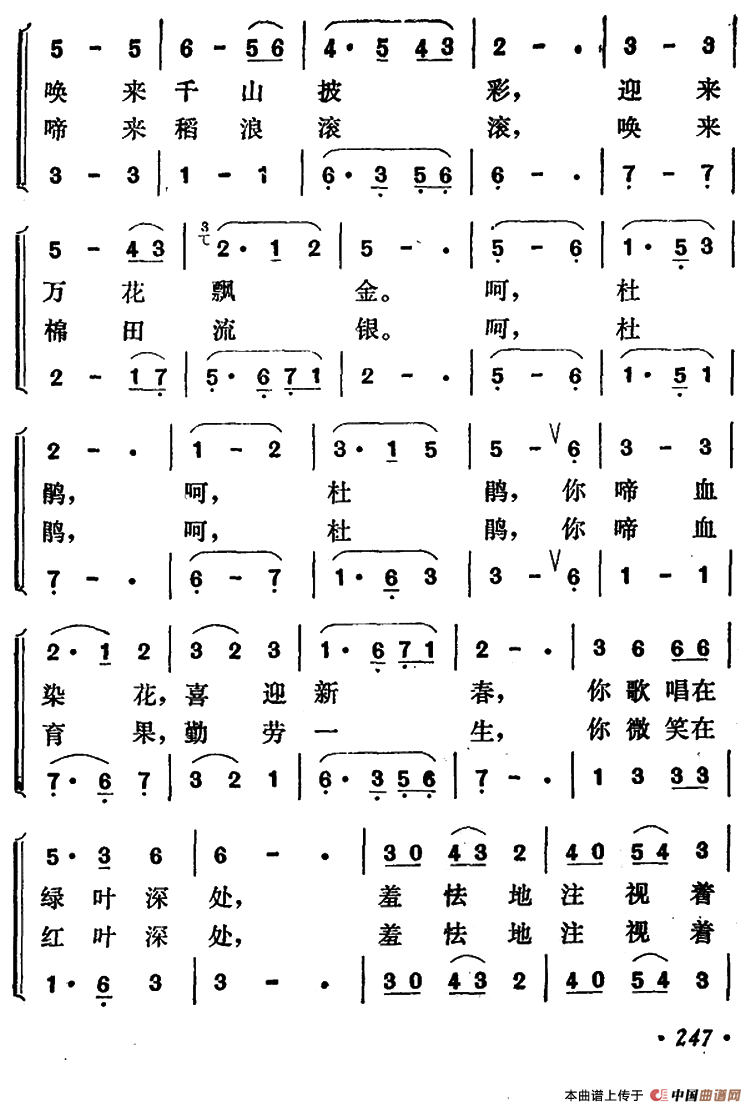 5 - 5 | 6 - 5 6 | 4 · 5 4 3 | 2 - · | 3 - 3
唤 来 千 山 披 彩， 迎 来
啼 来 稻 浪 滚 滚， 唤 来
3 - 3 | 1 - 1 | 6 · 3 5 6 | 6 - · | 7 - 7
5 - 4 3 | 2 · 1 2 | 5 - · | 5 - 6 | 1 · 5 3
万 花 飘 金。 呵， 杜
棉 田 流 银。 呵， 杜
2 - 1 7 | 5 · 6 7 1 | 2 - · | 5 - 6 | 1 · 5 1
2 - · | 1 - 2 | 3 · 1 5 | 5 - V 6 | 3 - 3
鹃， 呵， 杜 鹃， 你 啼 血
鹃， 呵， 杜 鹃， 你 啼 血
7 - · | 6 - 7 | 1 · 6 3 | 3 - V 6 | 1 - 1
2 · 1 2 | 3 2 3 | 1 · 6 7 1 | 2 - · | 3 6 6 6
染 花， 喜 迎 新 春， 你 歌 唱 在
育 果， 勤 劳 一 生， 你 微 笑 在
7 · 6 7 | 3 2 1 | 6 · 3 5 6 | 7 - · | 1 3 3 3
5 · 3 6 | 6 - · | 3 0 4 3 2 | 4 0 5 4 3
绿 叶 深 处， 羞 怯 地 注 视 着
红 叶 深 处， 羞 怯 地 注 视 着
1 · 6 3 | 3 - · | 3 0 4 3 2 | 4 0 5 4 3
· 247 ·
本曲谱上传于 中国曲谱网